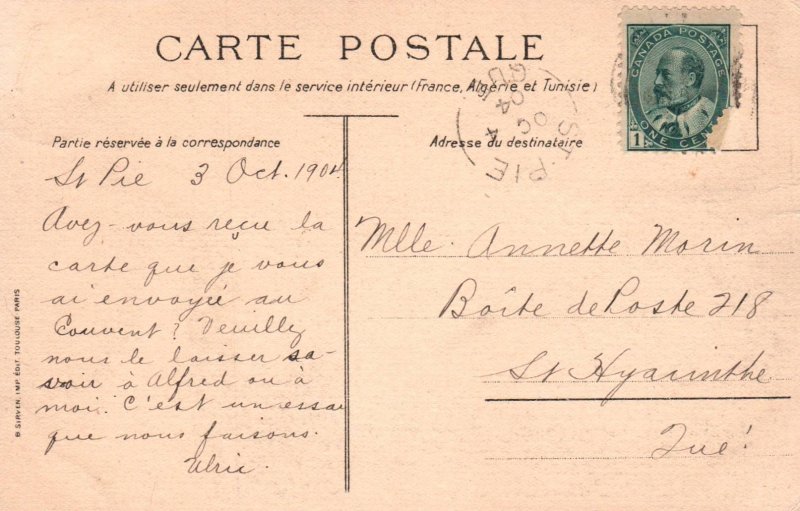 CARTE POSTALE
A utiliser seulement dans le service intérieur (France, Algérie et Tunisie)
CANADA POSTAGE
1
ONE CEN
ST. PIE
OC 4
04
QU
Partie réservée à la correspondance
Adresse du destinataire
St Pie 3 Oct. 1904.
Avez-vous reçu la
carte que je vous
ai envoyée au
Couvent? Veuillez
nous le laisser sa-
voir à Alfred ou à
moi. C'est un essai
que nous faisons.
Ulric.
Mlle. Annette Morin
Boîte de Poste 218
St Hyacinthe
Qué!
B SIRVEN, IMP. ÉDIT. TOULOUSE PARIS